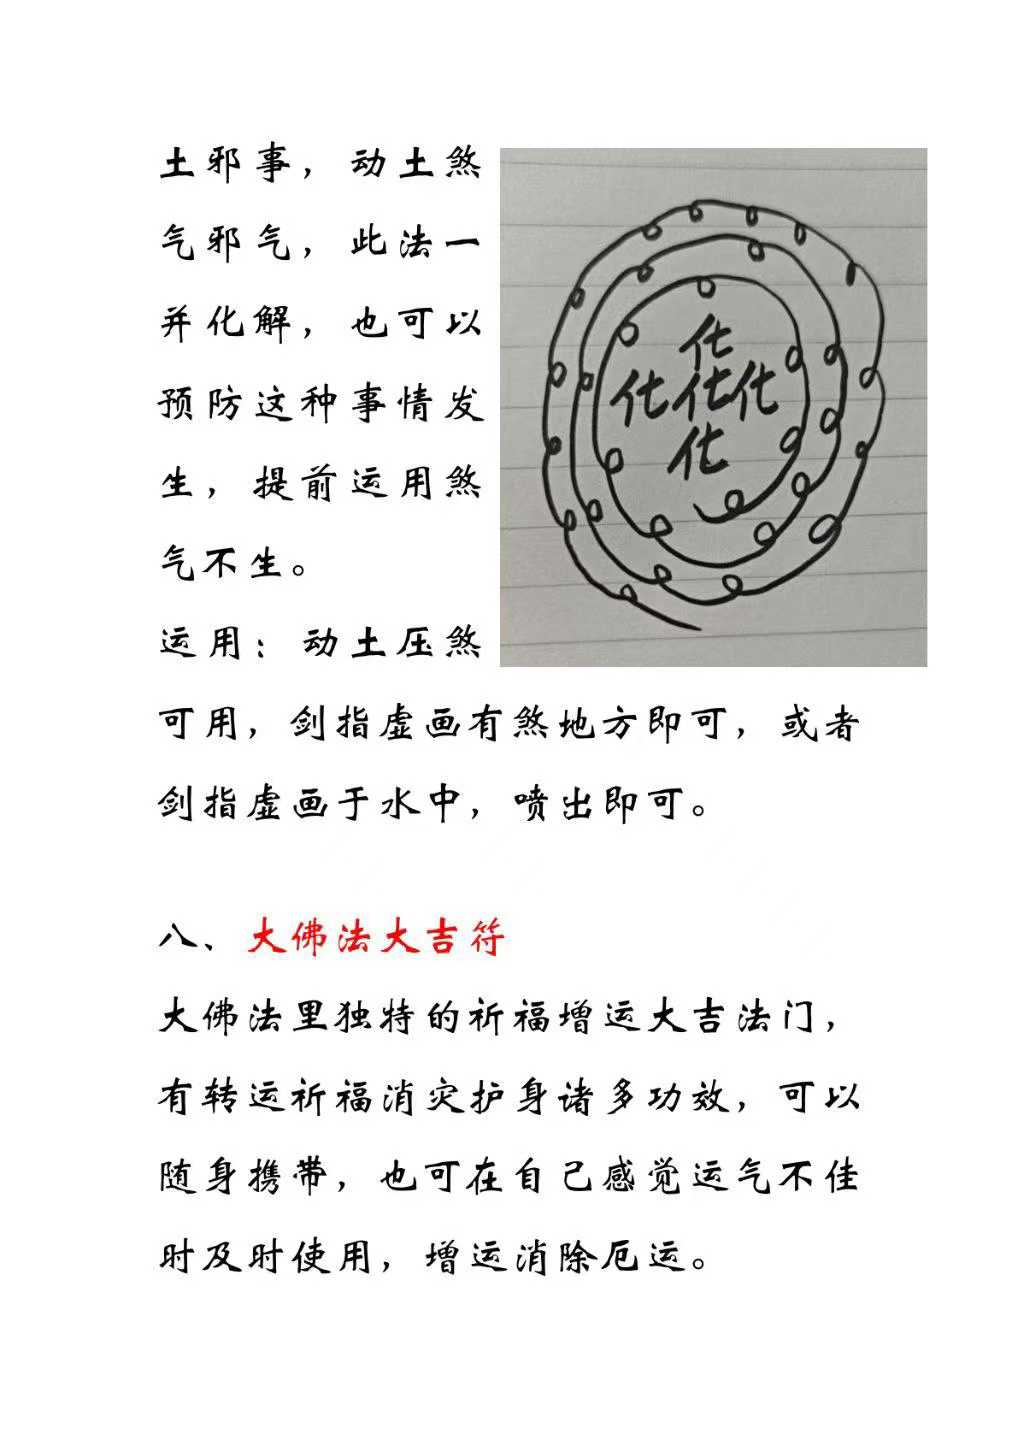 土邪事，动土煞
气邪气，此法一
并化解，也可以
预防这种事情发
生，提前运用煞
气不生。
运用：动土压煞
可用，剑指虚画有煞地方即可，或者
剑指虚画于水中，喷出即可。
化
化化化
化
八、大佛法大吉符
大佛法里独特的祈福增运大吉法门，
有转运祈福消灾护身诸多功效，可以
随身携带，也可在自己感觉运气不佳
时及时使用，增运消除厄运。